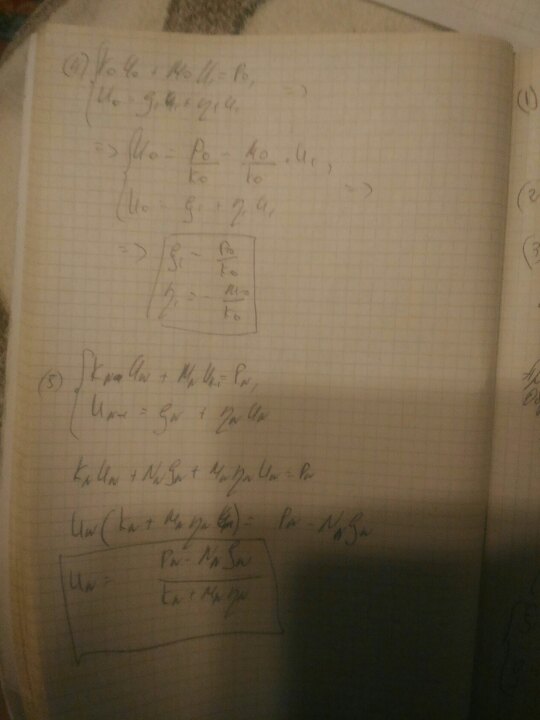 (4) { K₀ U₀ + M₀ U₁ = P₀, =>
U₀ = ξ₁ + η₁ U₁
=> { U₀ = P₀/K₀ - M₀/K₀ · U₁, =>
U₀ = ξ₁ + η₁ U₁
=> ξ₁ = P₀/K₀
η₁ = - M₀/K₀
(5) { K_N U_N + M_N U_{N-1} = P_N,
U_{N-1} = ξ_N + η_N U_N
K_N U_N + M_N ξ_N + M_N η_N U_N = P_N
U_N (K_N + M_N η_N) = P_N - M_N ξ_N
U_N = (P_N - M_N ξ_N)/(K_N + M_N η_N)
(1)
(2
(3